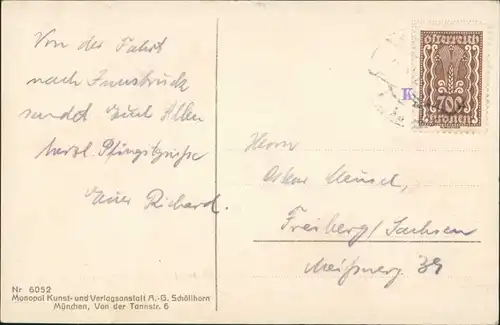 Von der Fahrt
nach Innsbruck
sendet Euch Allen
herzl. Pfingstgrüße
Euer Richard.
Nr 6052
Monopol Kunst- und Verlagsanstalt A.-G. Schöllhorn
München, Von der Tannstr. 6
österreich
700
kronen
Herrn
Oskar Meusel,
Freiberg/Sachsen
Meißnerg. 39